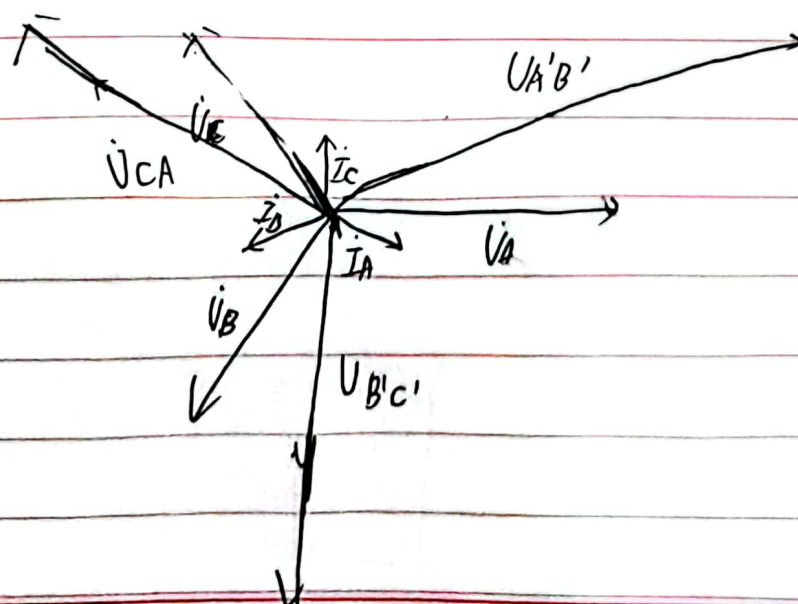 U_A'B'
U̇_C
İ_C
U̇_CA
İ_B
İ_A
U̇_A
U̇_B
U_B'C'